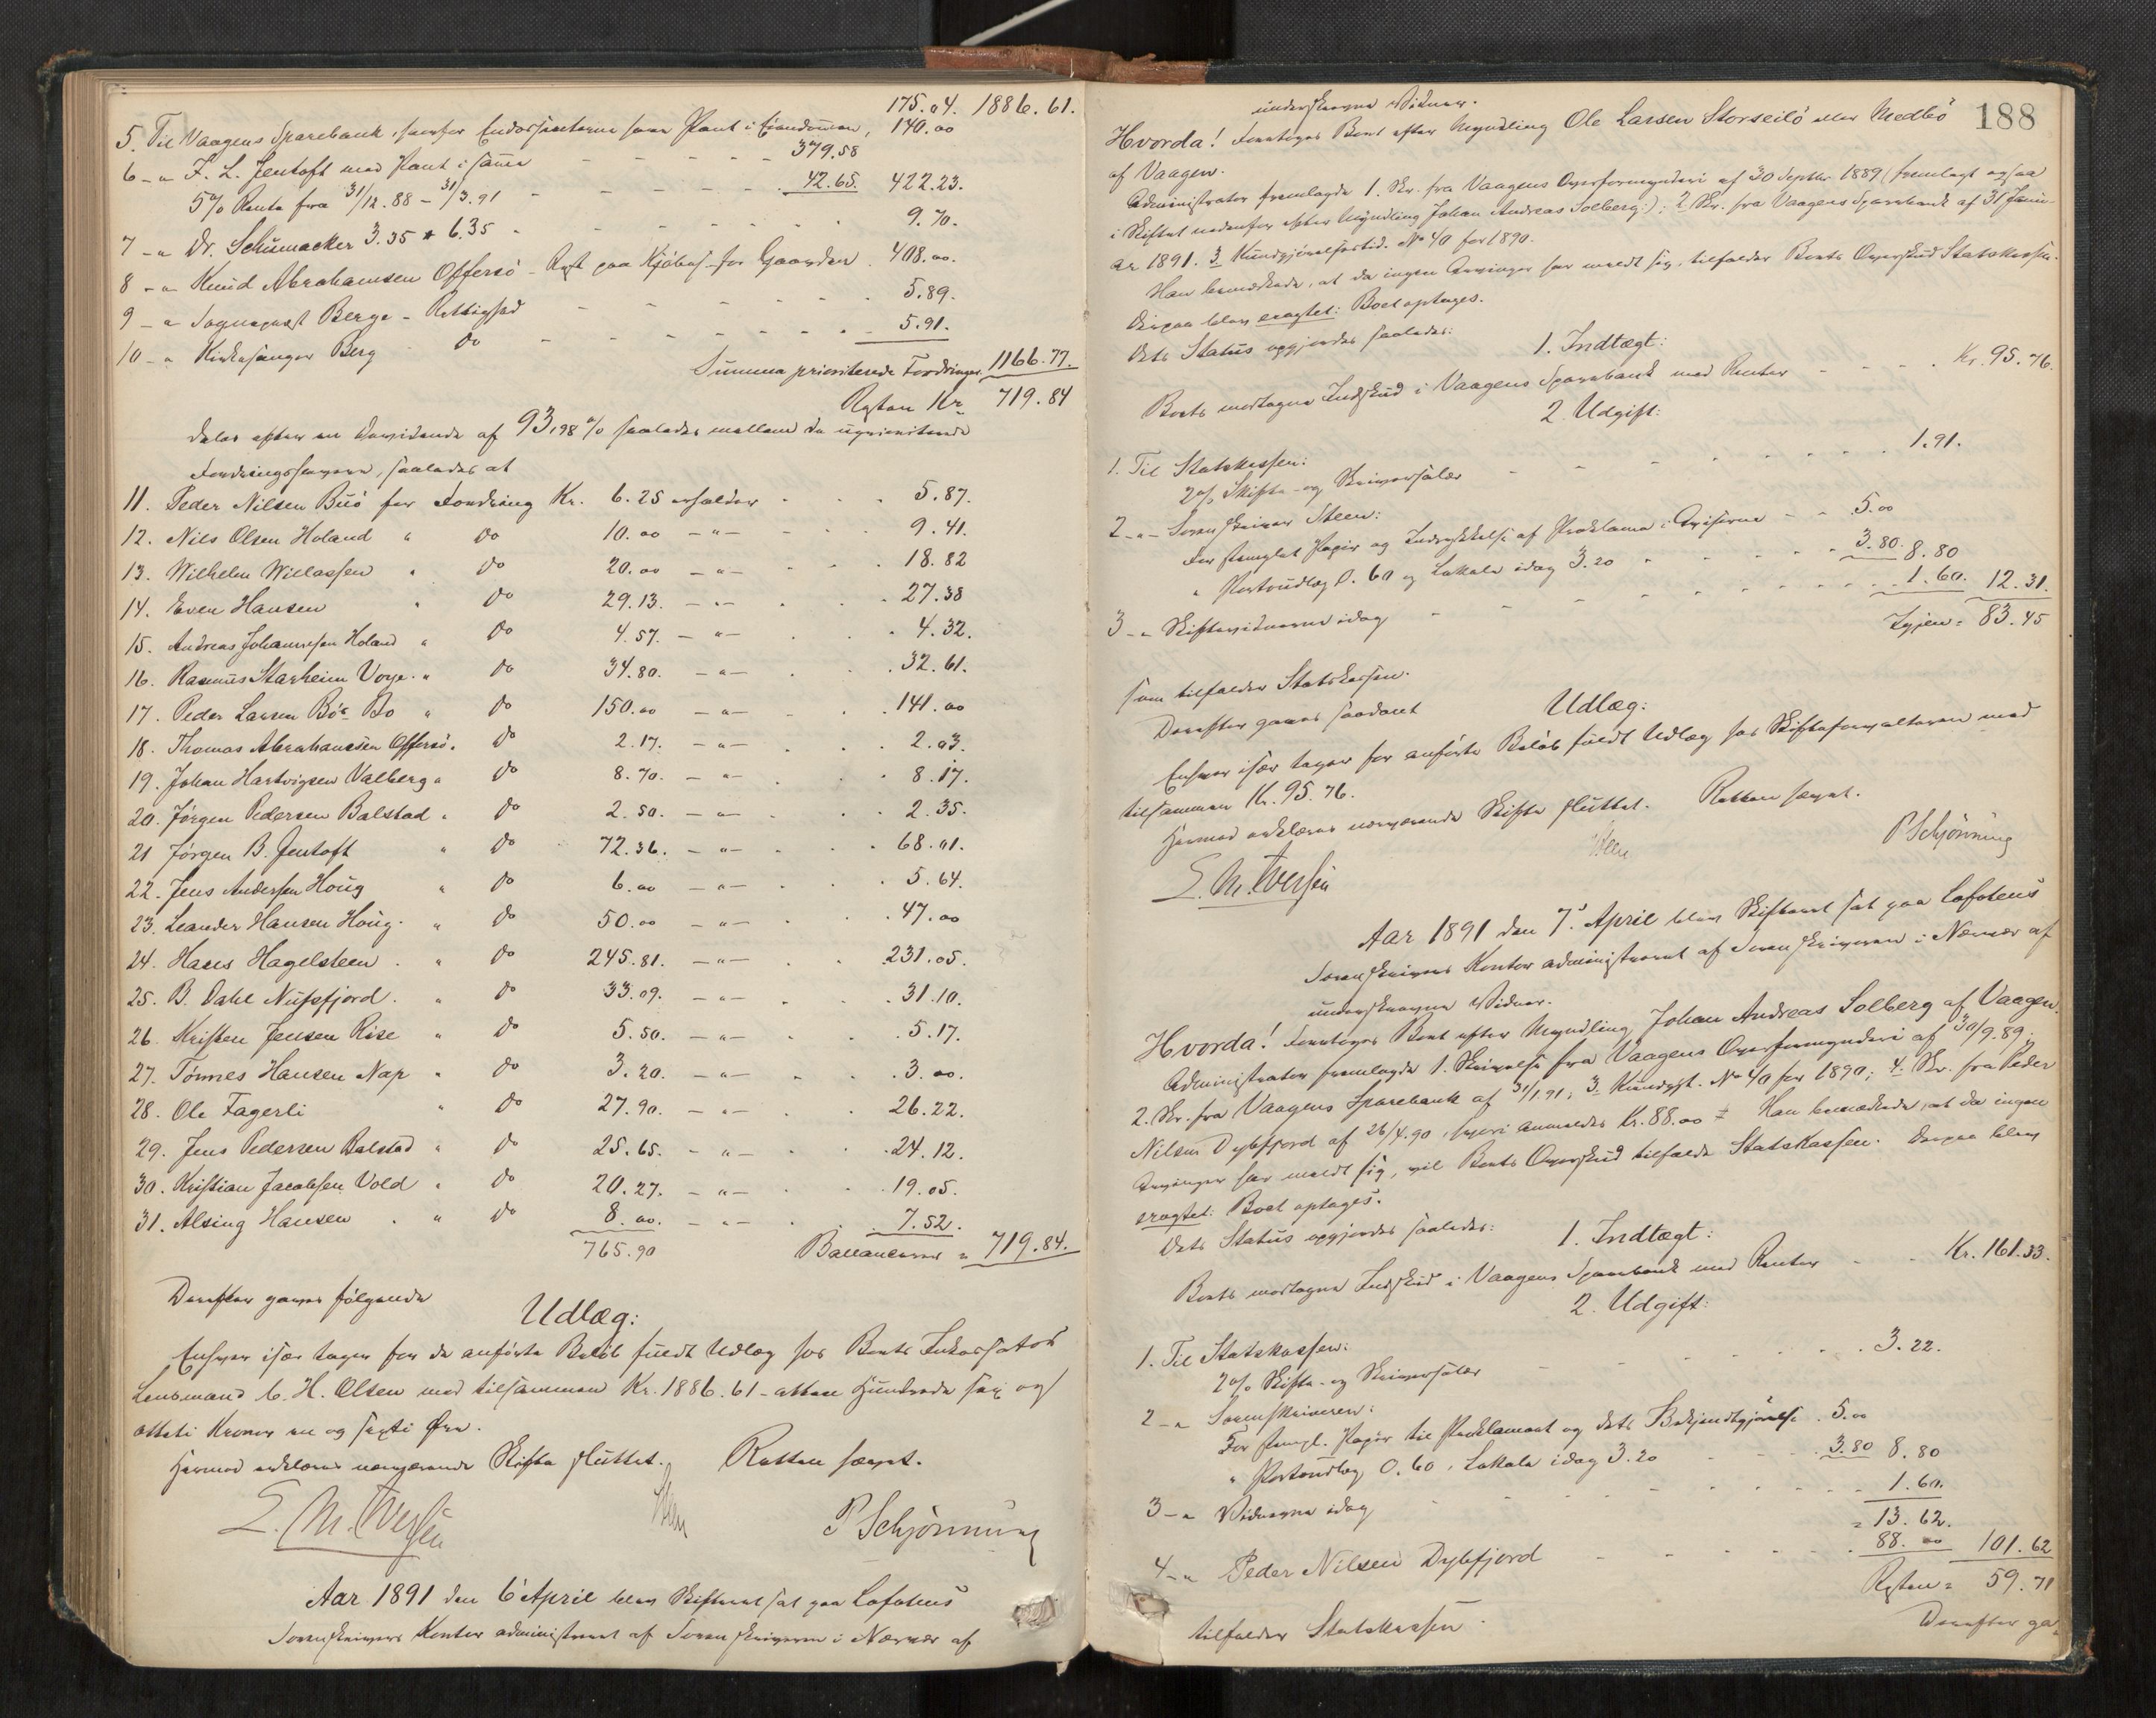 175.04. 1886.61.
5. Til Vaagens Sparebank, herfor Endossenterne have Pant i Eiendommen, 140.00
6 - " F. L. Jentoft med Pant i samme - - - - - 379.58
5% Rente fra 31/12.88 - 31/3.91 - - - - - 42.65. 422.23.
7 - " Dr. Schumacker 3.35 + 6.35 - - - - 9.70.
8 - " Knud Abrahamsen Offersö - Rest paa Kjöbes. for Gaarden 408.00.
9 - " Sogneprest Berge - Rettighed - - - - 5.89.
10 - " Kirkesanger Berg do - - - - 5.91.
Summa prioriterede Fordringer 1166.77.
Resten Kr. 719.84
deles efter en Dividende af 93,98 % saaledes mellem de uprioriterede
Fordringshavere, saaledes at
11. Peder Nilsen Buö for Fordring Kr. 6.25 erholder . . . 5.87.
12. Nils Olsen Holand " do 10.00 - " - . . 9.41.
13. Wilhelm Willassen " do 20.00 - " - . . 18.82
14. Even Hansen " do 29.13. - " - . . 27.38
15. Andreas Johannesen Holand " do 4.57. - " - . . 4.32.
16. Rasmus Starheim Voje. " do 34.80. - " - . . 32.61.
17. Peder Larsen Bö - Bo " do 150.00 - " - . . 141.00
18. Thomas Abrahamsen Offersö. do 2.17. - " - . . 2.03.
19. Johan Hartvigsen Valberg " do 8.70. - " - . . 8.17.
20. Jörgen Pedersen Balstad " do 2.50. - " - . . 2.35.
21 Jörgen B. Jentoft " do 72.36. - " - . . 68.01.
22. Jens Andersen Houg " do 6.00 - " - . . 5.64.
23. Leander Hansen Houg. " do 50.00 - " - . . 47.00
24. Hans Hagelsteen . " do 245.81. - " - . . 231.05.
25. B. Dahl Nufsfjord. " do 33.09. - " - . . 31.10.
26. Kristen Jensen Rise " do 5.50. - " - . . 5.17.
27. Tönnes Hansen Nap " do 3.20. - " - . . 3.00.
28. Ole Fagerli " do 27.90. - " - . . 26.22.
29. Jens Pedersen Balstad " do 25.65. - " - . . 24.12.
30. Kristian Jacobsen Vold " do 20.27. - " - . . 19.05.
31. Alsing Hansen . " do 8.00. - " - . . 7.52.
765.90 Ballancerer = 719.84.
Derefter gaves fölgende
Udlæg:
Enhver især tager for de anförte Belöb fuldt Udlæg hos Boets Inkassator
Lensmand C. H. Olsen med tilsammen Kr. 1886.61 - atten Hundrede sex og
otteti Kroner en og sexti Öre.
Hermed erklæres nærværende Skifte sluttet. Retten hævet.
E. M. Iversen Steen P Schjönning
Aar 1891 den 6 April blev Skifteret sat paa Lofotens
Sorenskrivers Kontor administreret af Sorenskriveren i Nærvær af
188
underskrevne Vidner.
Hvorda! Foretoges Boet efter Myndling Ole Larsen Storseilö eller Medbö
af Vaagen.
Administrator fremlagde 1. Skr. fra Vaagens Overformynderi af 30 Septbr. 1889 (fremlagt ogsaa
i Skiftet nedenfor efter Myndling Johan Andreas Solberg:); 2 Skr. fra Vaagens Sparebank af 31 Janu-
ar 1891. 3 Kundgjörelsestid. No 40 for 1890.
Han bemærkede, at da ingen Arvinger har meldt sig, tilfalder Boets Overskud Statskassen.
Derpaa blev eragtet: Boet optages.
Dets Status opgjordes saaledes:
1. Indtægt:
Boets modtagne Indskud i Vaagens Sparebank med Renter - - - . Kr. 95.76.
2. Udgift:
1. Til Statskassen:
2% Skifte- og Skriversalær - - - - - 1.91.
2 - " - Sorenskriver Steen:
For stemplet Papir og Indrykkelse af Proklama i Aviserne - - 5.00
" Portoudlæg 0.60 og Lokale idag 3.20 - - - 3.80. 8.80
3 - " Skiftevidnerne idag - - - - 1.60. 12.31.
Igjen = 83.45
som tilfalder Statskassen.
Derefter gaves saadant
Udlæg:
Enhver især tager for anförte Belöb fuldt Udlæg hos Skifteforvalteren med
tilsammen Kr. 95.76.
Hermed erklæres nærværende Skifte sluttet. Retten hævet.
E. M. Iversen Steen P Schjönning
Aar 1891 den 7de April blev Skifteret sat paa Lofotens
Sorenskrivers Kontor administreret af Sorenskriveren i Nærvær af
underskrevne Vidner.
Hvorda! Foretoges Boet efter Myndling Johan Andreas Solberg af Vaagen.
Administrator fremlagde 1. Skrivelse fra Vaagens Overformynderi af 30/9.89;
2. Skr. fra Vaagens Sparebank af 31/1 91; 3 Kundgjt. No 40 for 1890; 4 Skr. fra Peder
Nilsen Dybfjord af 26/4.90, hvori anmeldes Kr. 88.00 Han bemærkede, at da ingen
Arvinger har meldt sig, vil Boets Overskud tilfalde Statskassen. Derpaa blev
eragtet: Boet optages.
Dets Status opgjordes saaledes:
1. Indtægt:
Boets modtagne Indskud i Vaagens Sparebank med Renter - - Kr. 161.33.
2. Udgift:
1. Til Statskassen:
2% Skifte- og Skriversalær - - - - 3.22.
2 - " Sorenskriveren:
For stempl. Papir til Proklamaet og dets Bekjendtgjörelse . 5.00
" Portoudlæg 0.60, Lokale idag 3.20 - - 3.80 8.80
3 - " Vidnerne idag - - - - 1.60.
= 13.62.
4 - " Peder Nilsen Dybfjord - - - - 88.00 101.62
Resten = 59.71
tilfalder Statskassen.
Derefter ga-